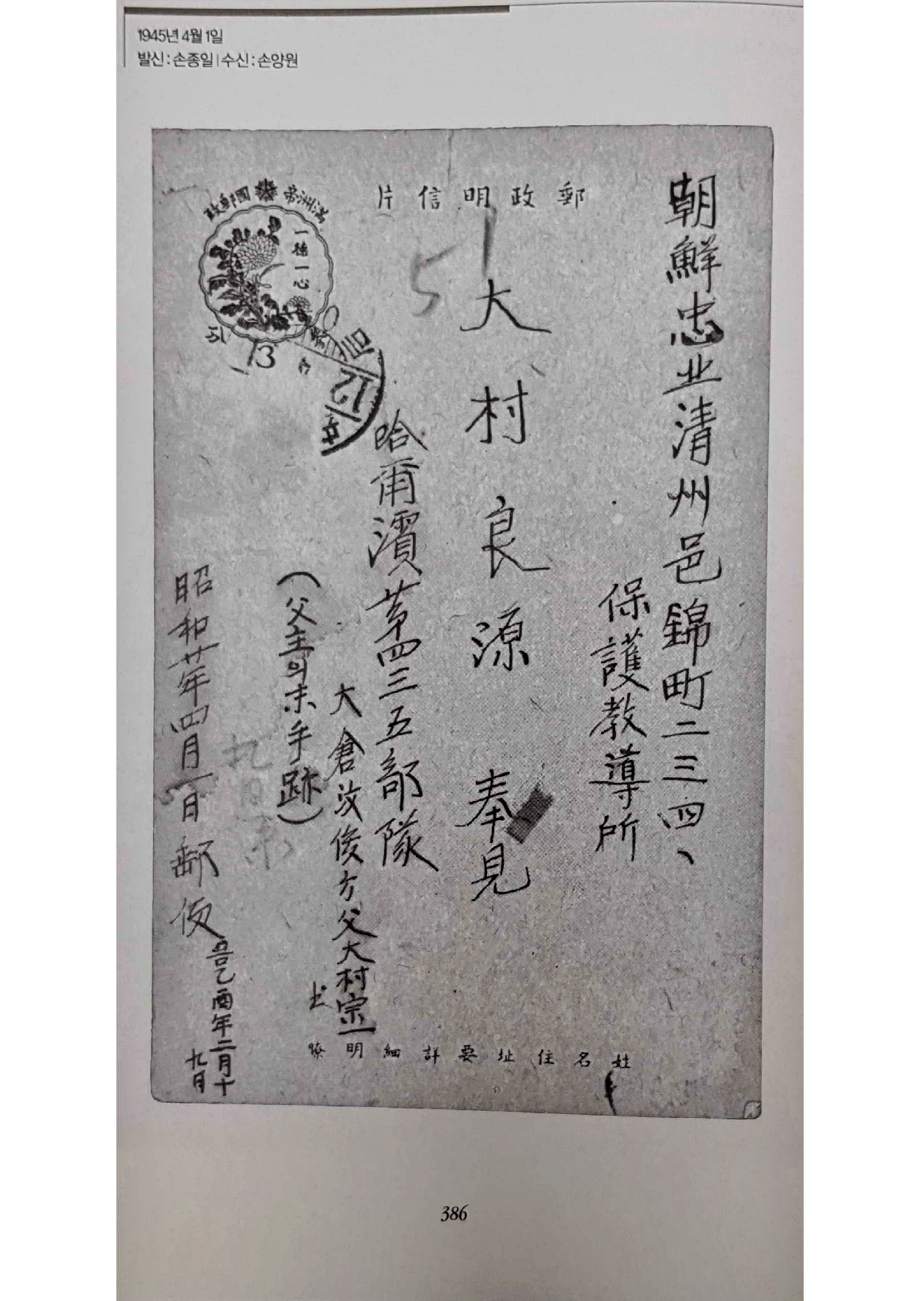 1945년 4월 1일
발신 : 손종일 | 수신 : 손양원
郵政明信片
滿洲帝國郵政
一德一心
51
朝鮮忠北清州邑錦町二三四、
保護教導所
大村良源 奉見
哈爾濱第四三五部隊
大倉汶俊方父大村宗一
(父主의末手跡)
昭和廿年四月一日郵便
音乙酉年二月十九日
姓名住址要詳細明瞭
386